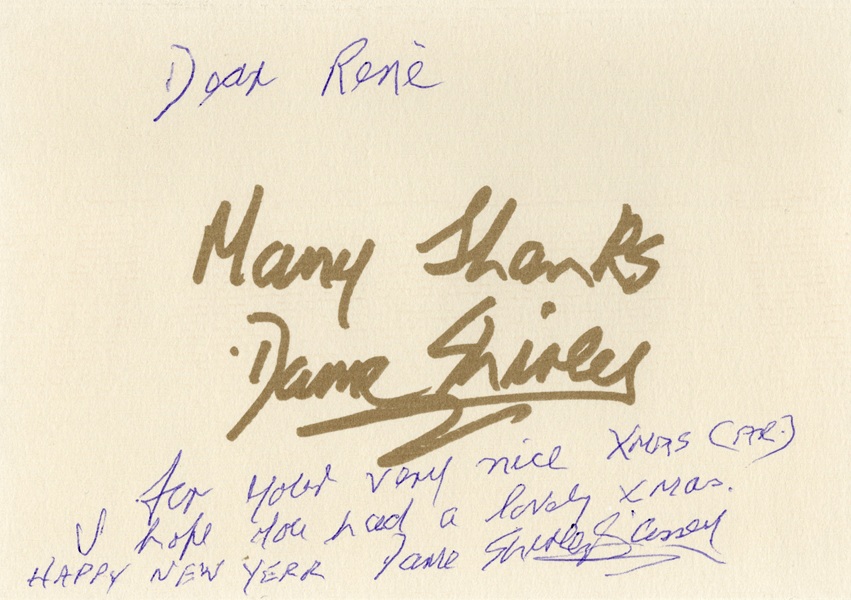 Dear René
Many Thanks
Dame Shirley
for your very nice Xmas
I hope you had a lovely Xmas.
HAPPY NEW YEAR Dame Shirley Bassey